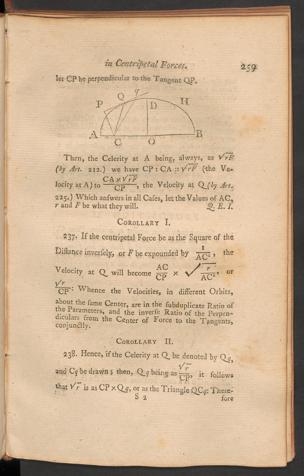 in Centripetal Forces. 259
let CP be perpendicular to the Tangent QP.
P Q q D H
A C O B
Then, the Celerity at A being, always, as √rF
(by Art. 212.) we have CP : CA :: √rF (the Ve-
locity at A) to CA × √rF / CP, the Velocity at Q (by Art.
225.) Which answers in all Cases, let the Values of AC,
r and F be what they will. Q. E. I.
COROLLARY I.
237. If the centripetal Force be as the Square of the
Distance inversely, or F be expounded by 1/AC², the
Velocity at Q will become AC/CP × √r/AC², or
√r/CP: Whence the Velocities, in different Orbits,
about the same Center, are in the subduplicate Ratio of
the Parameters, and the inverse Ratio of the Perpen-
diculars from the Center of Force to the Tangents,
conjunctly.
COROLLARY II.
238. Hence, if the Celerity at Q be denoted by Qq,
and Cq be drawn; then, Qq being as √r/CP, it follows
that √r is as CP × Qq, or as the Triangle QCq: There-
S 2 fore